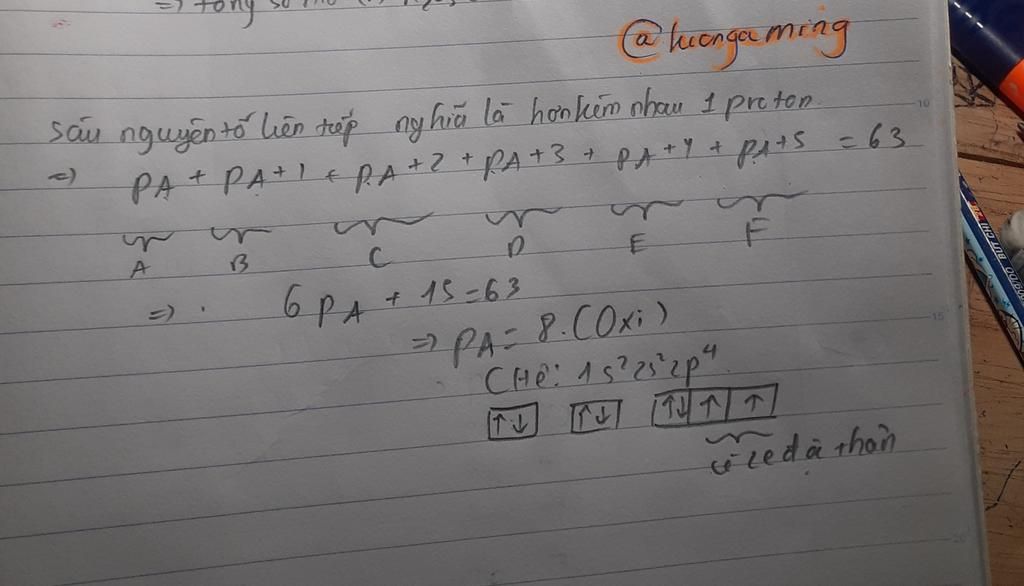 => tổng số
@luongaming
sáu nguyên tố liên tiếp nghĩa là hơn kém nhau 1 proton
=> PA + PA+1 + PA+2 + PA+3 + PA+4 + PA+5 = 63
A B C D E F
=> . 6PA + 15 = 63
=> PA = 8. (Oxi)
CHe: 1s²2s²2p⁴
↑↓ ↑↓ ↑↓ ↑ ↑
có 2e độc thân
10
15
20
BÚT CHÌ